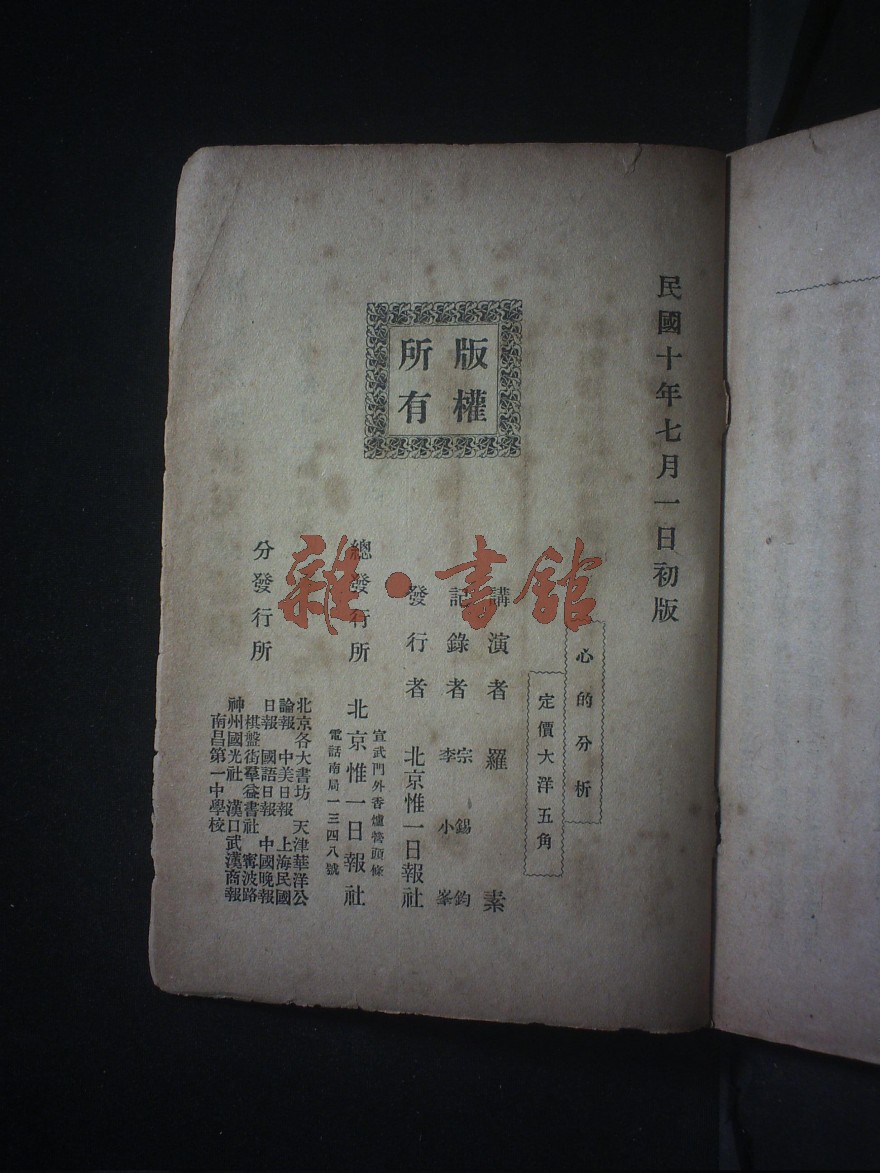 民國十年七月一日初版
版權
所有
心的分析
定價大洋五角
講演者 羅素
記錄者 宗錫鈞 李小峯
發行者 北京惟一日報社
總發行所 北京惟一日報社
宣武門外香爐營頭條
電話南局一三四八號
分發行所
北京各大書坊 天津華洋公
論報 中美日報 上海民國
日報 國語日報 中國晚報
棋盤街羣益書社 甯波路
神州國光社 漢口武漢商報
南昌第一中學校
雜·書館